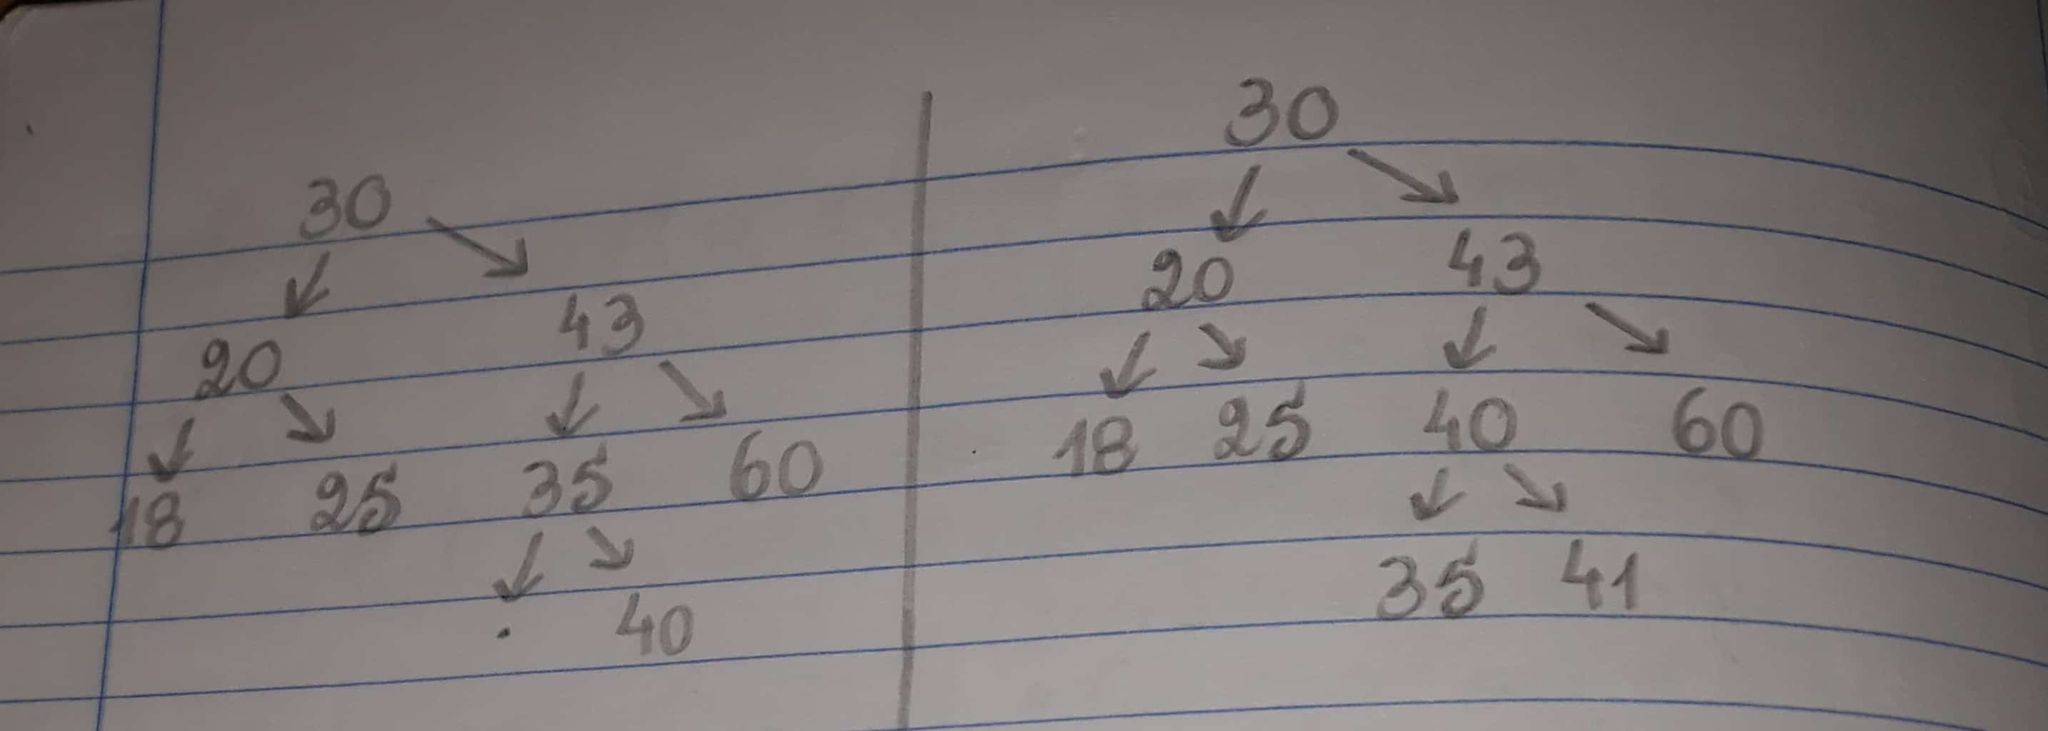 30
20 43
18 25 35 60
. 40
30
20 43
18 25 40 60
35 41